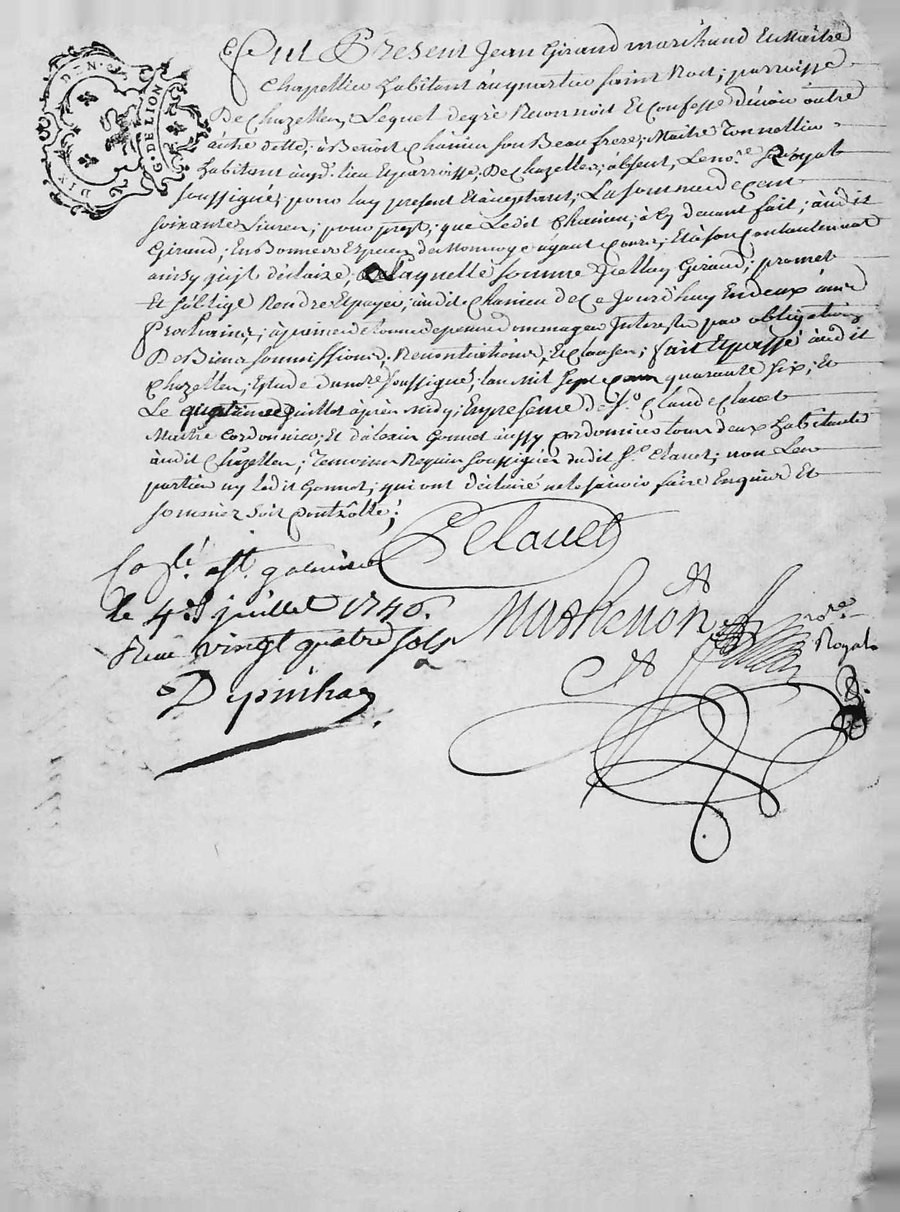 DIX DEN.
G. DE LION
Fut Present Jean Girand marchand Et Maitre
Chappellier habitant au quartier saint Roch; parroisse
De Chazelles, Lequel de gré Reconnoit Et Confesse devoir
à Benoit Chanieu son Beau frere, Maitre Tonnellier
habitant aud. lieu Et parroisse, De Chazelles, absent, Le no.re Royal
soussigné, pour luy present Et acceptant, La somme de cent
soixante Livres; pour prest, que Ledit Chanieu, a Cy devant fait; audit
Girand; En Bonnes Especes de Monnoye ayant Cours; Et à son Contentement
ainsy qu'il declaire; Laquelle somme Jcelluy Girand; promet
Et s'oblige Rendre Et payer; audit Chanieu de Ce Jourd'huy En deux années
Prochaines; à peine de tous depens dommages Interests par obligation
De Biens soumissions; Renontiations, Et Clauses; fait Et passé audit
Chazelles; Estude du no.re soussigné; l'an Mil Sept Cent quarante six; Et
Le quatrieme Juillet après midy; En presence de s.r Claude Clavet
Maitre Cordonnier; Et d'alexis Gonnet aussy Cordonnier tous deux habitants
audit Chazelles; Temoins Requis soussignés ledit S.r Clavet; non Les
parties ny Ledit Gonnet; qui ont declairé ne le sçavoir faire Enquis Et
sommés soit Controllé;
C Clavet
le 4e juillet 1746.
Reçu vingt quatre sols
no.re
Royal